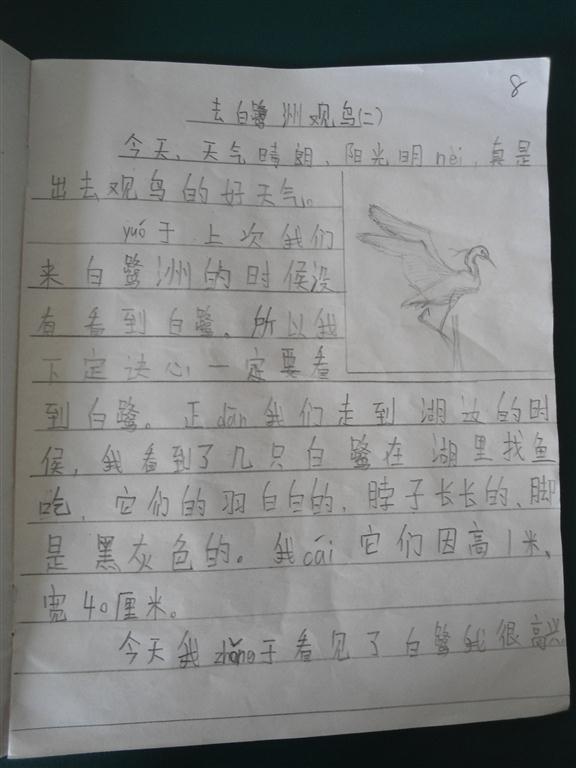 8
去白鹭洲观鸟(二)
今天、天气晴朗、阳光明nèi,真是
出去观鸟的好天气。
yuó于上次我们
来白鹭洲的时候没
有看到白鹭、所以我
下定决心一定要看
到白鹭。正dān我们走到湖边的时
侯,我看到了几只白鹭在湖里找鱼
吃、它们的羽白白的、脖子长长的、脚
是黑灰色的。我cāi它们因高1米、
宽40厘米。
今天我zhōng于看见了白鹭我很高兴。